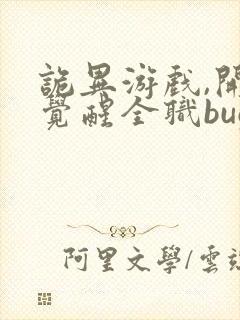 詭異游戲,開
覺醒全職bu
阿里文學/雲